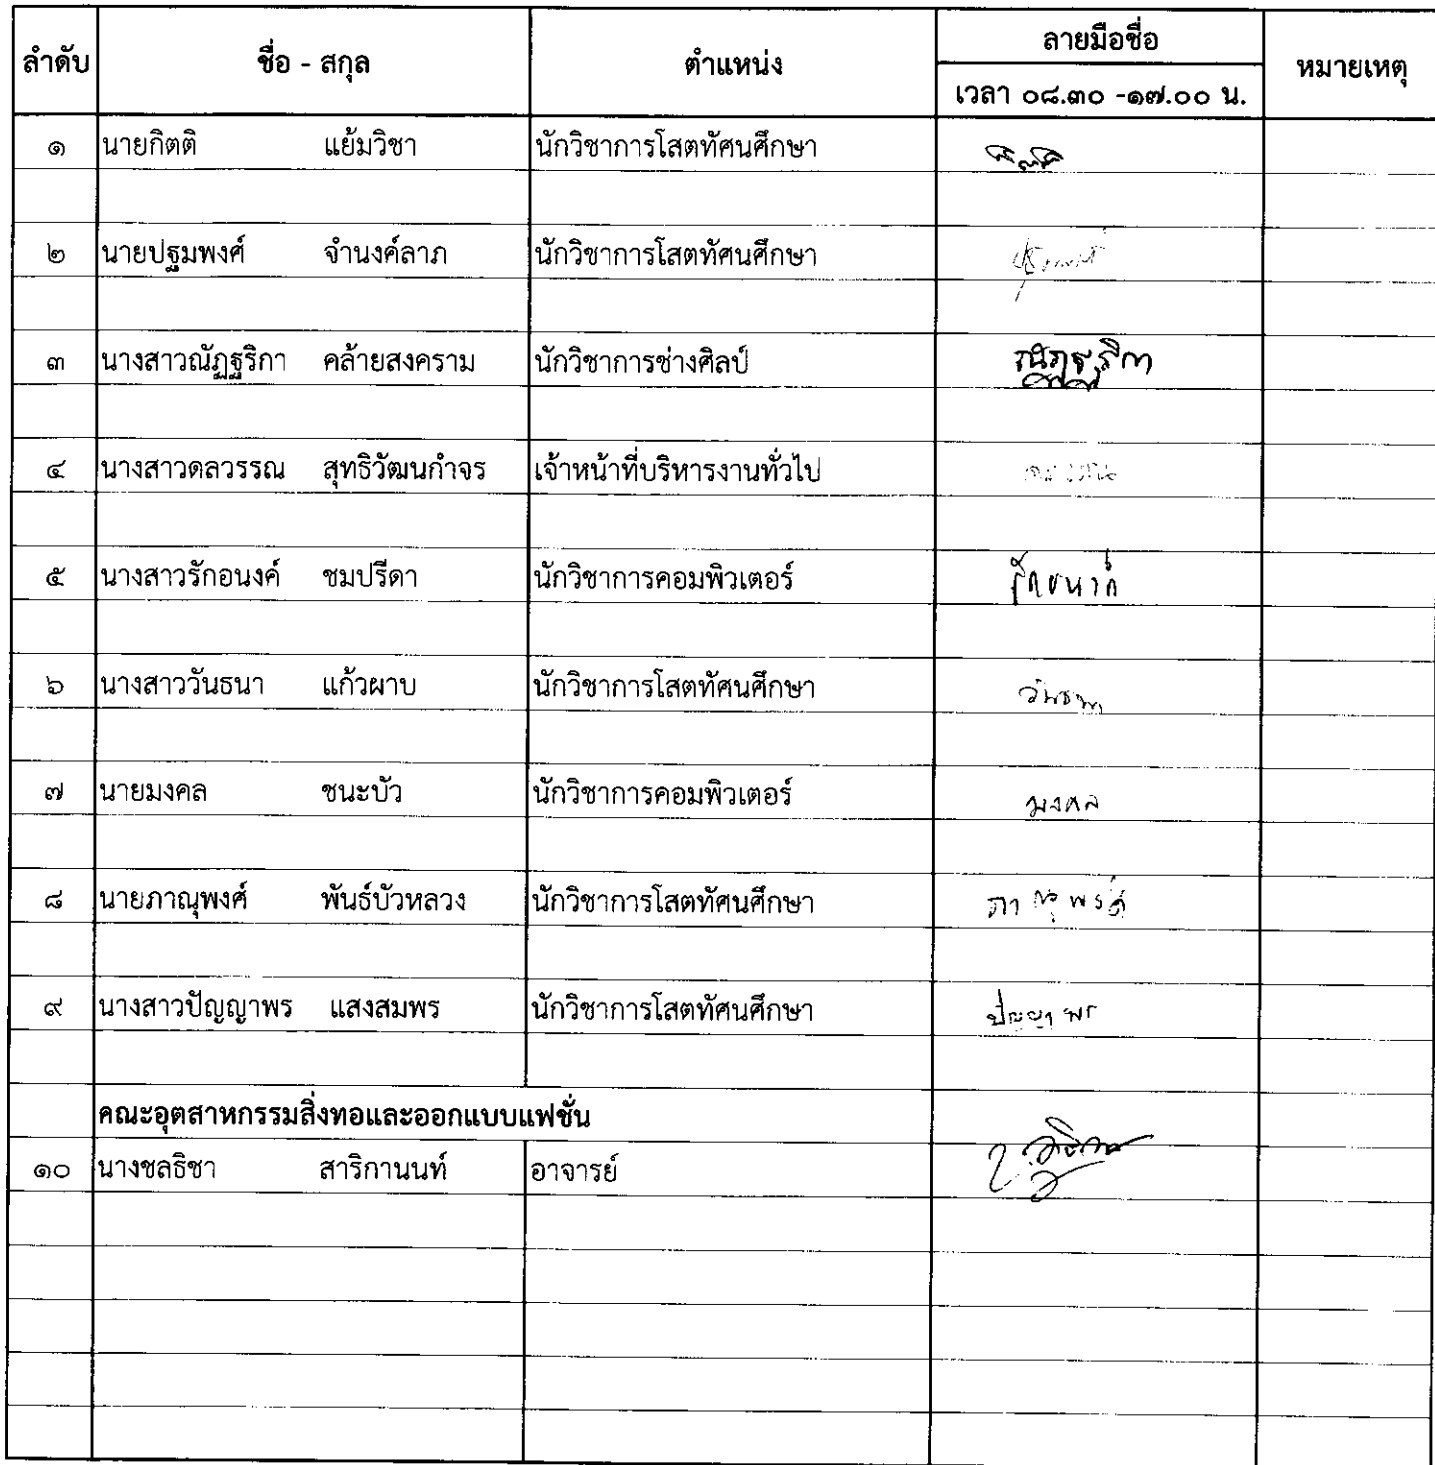 ลำดับ ชื่อ - สกุล ตำแหน่ง ลายมือชื่อ หมายเหตุ
เวลา ๐๘.๓๐ -๑๗.๐๐ น.
๑ นายกิตติ แย้มวิชา นักวิชาการโสตทัศนศึกษา
๒ นายปฐมพงศ์ จำนงค์ลาภ นักวิชาการโสตทัศนศึกษา
๓ นางสาวณัฏฐริกา คล้ายสงคราม นักวิชาการช่างศิลป์ ณัฏฐริกา
๔ นางสาวดลวรรณ สุทธิวัฒนกำจร เจ้าหน้าที่บริหารงานทั่วไป
๕ นางสาวรักอนงค์ ชมปรีดา นักวิชาการคอมพิวเตอร์ รักอนงค์
๖ นางสาววันธนา แก้วผาบ นักวิชาการโสตทัศนศึกษา วันธนา
๗ นายมงคล ชนะบัว นักวิชาการคอมพิวเตอร์ มงคล
๘ นายภาณุพงศ์ พันธ์บัวหลวง นักวิชาการโสตทัศนศึกษา ภาณุพงศ์
๙ นางสาวปัญญาพร แสงสมพร นักวิชาการโสตทัศนศึกษา ปัญญาพร
คณะอุตสาหกรรมสิ่งทอและออกแบบแฟชั่น
๑๐ นางชลธิชา สาริกานนท์ อาจารย์